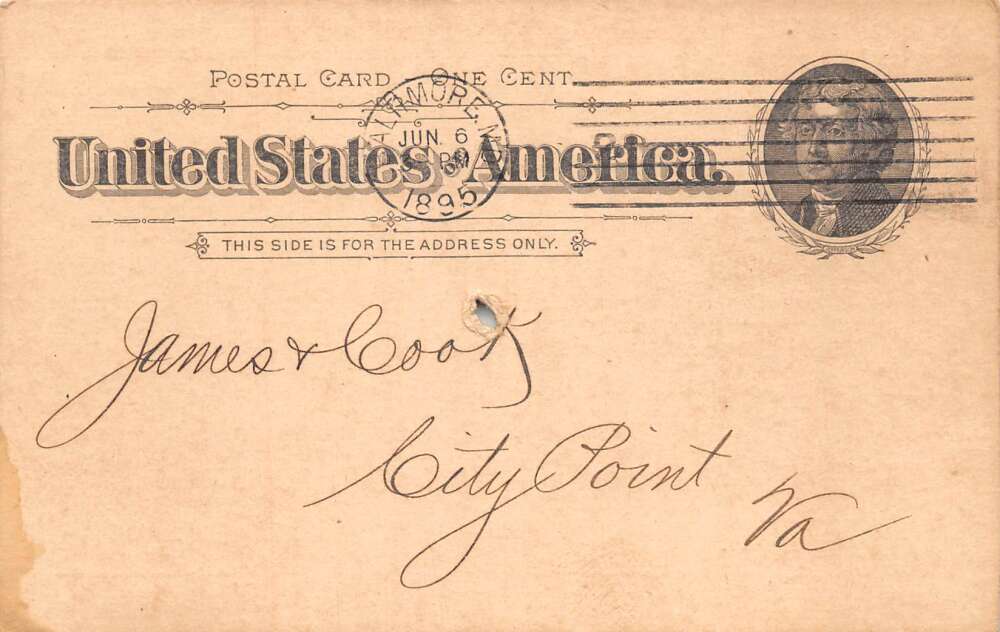 POSTAL CARD - ONE CENT.
United States of America.
BALTIMORE, MD.
JUN. 6
PM
1895
THIS SIDE IS FOR THE ADDRESS ONLY.
James & Cook
City Point
Va